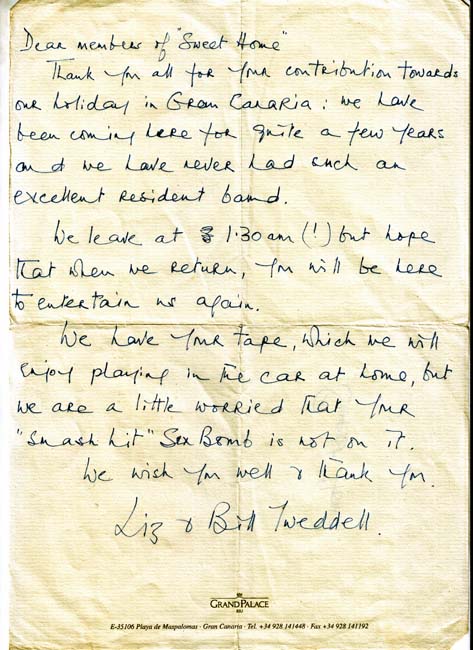 Dear members of "Sweet Home"
Thank you all for your contribution towards
our holiday in Gran Canaria: we have
been coming here for quite a few years
and we have never had such an
excellent resident band.
We leave at 1.30am (!) but hope
that when we return, you will be here
to entertain us again.
We have your tape, which we will
enjoy playing in the car at home, but
we are a little worried that your
"smash hit" Sex Bomb is not on it.
We wish you well & thank you.
Liz & Bill Tweddell.
GRAND PALACE
RIU
E-35106 Playa de Maspalomas · Gran Canaria · Tel. +34 928 141448 · Fax +34 928 141192